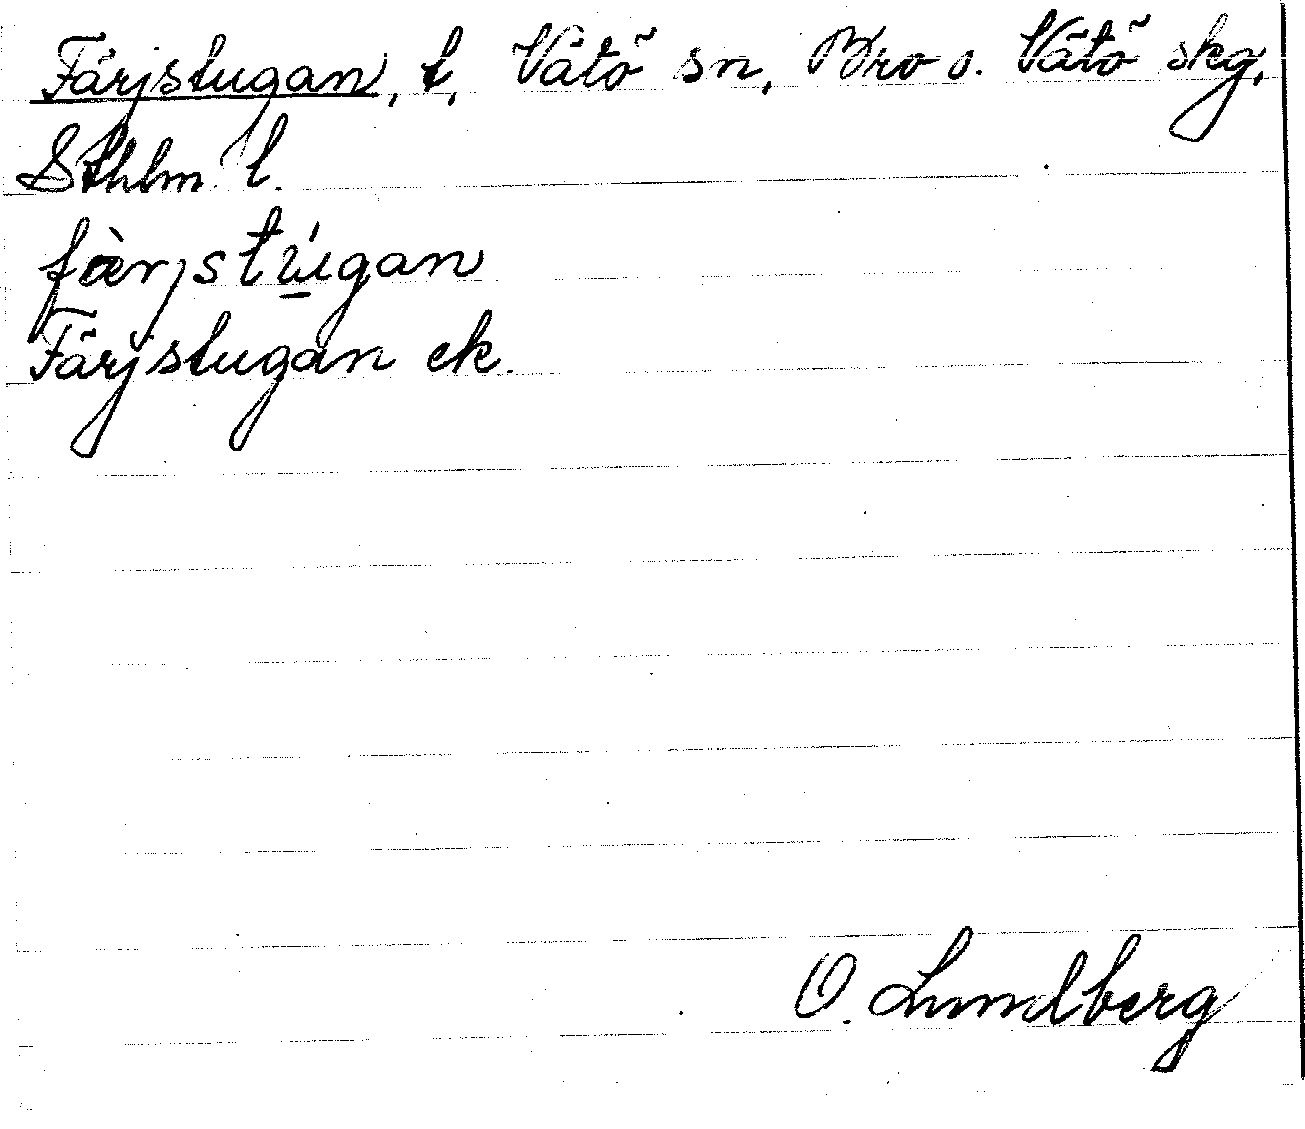 Färjstugan, t, Vätö sn, Bro o. Vätö skg,
Sthlm l.
fæ̀rjstú̱gan
Färjstugan ek.
O. Lundberg